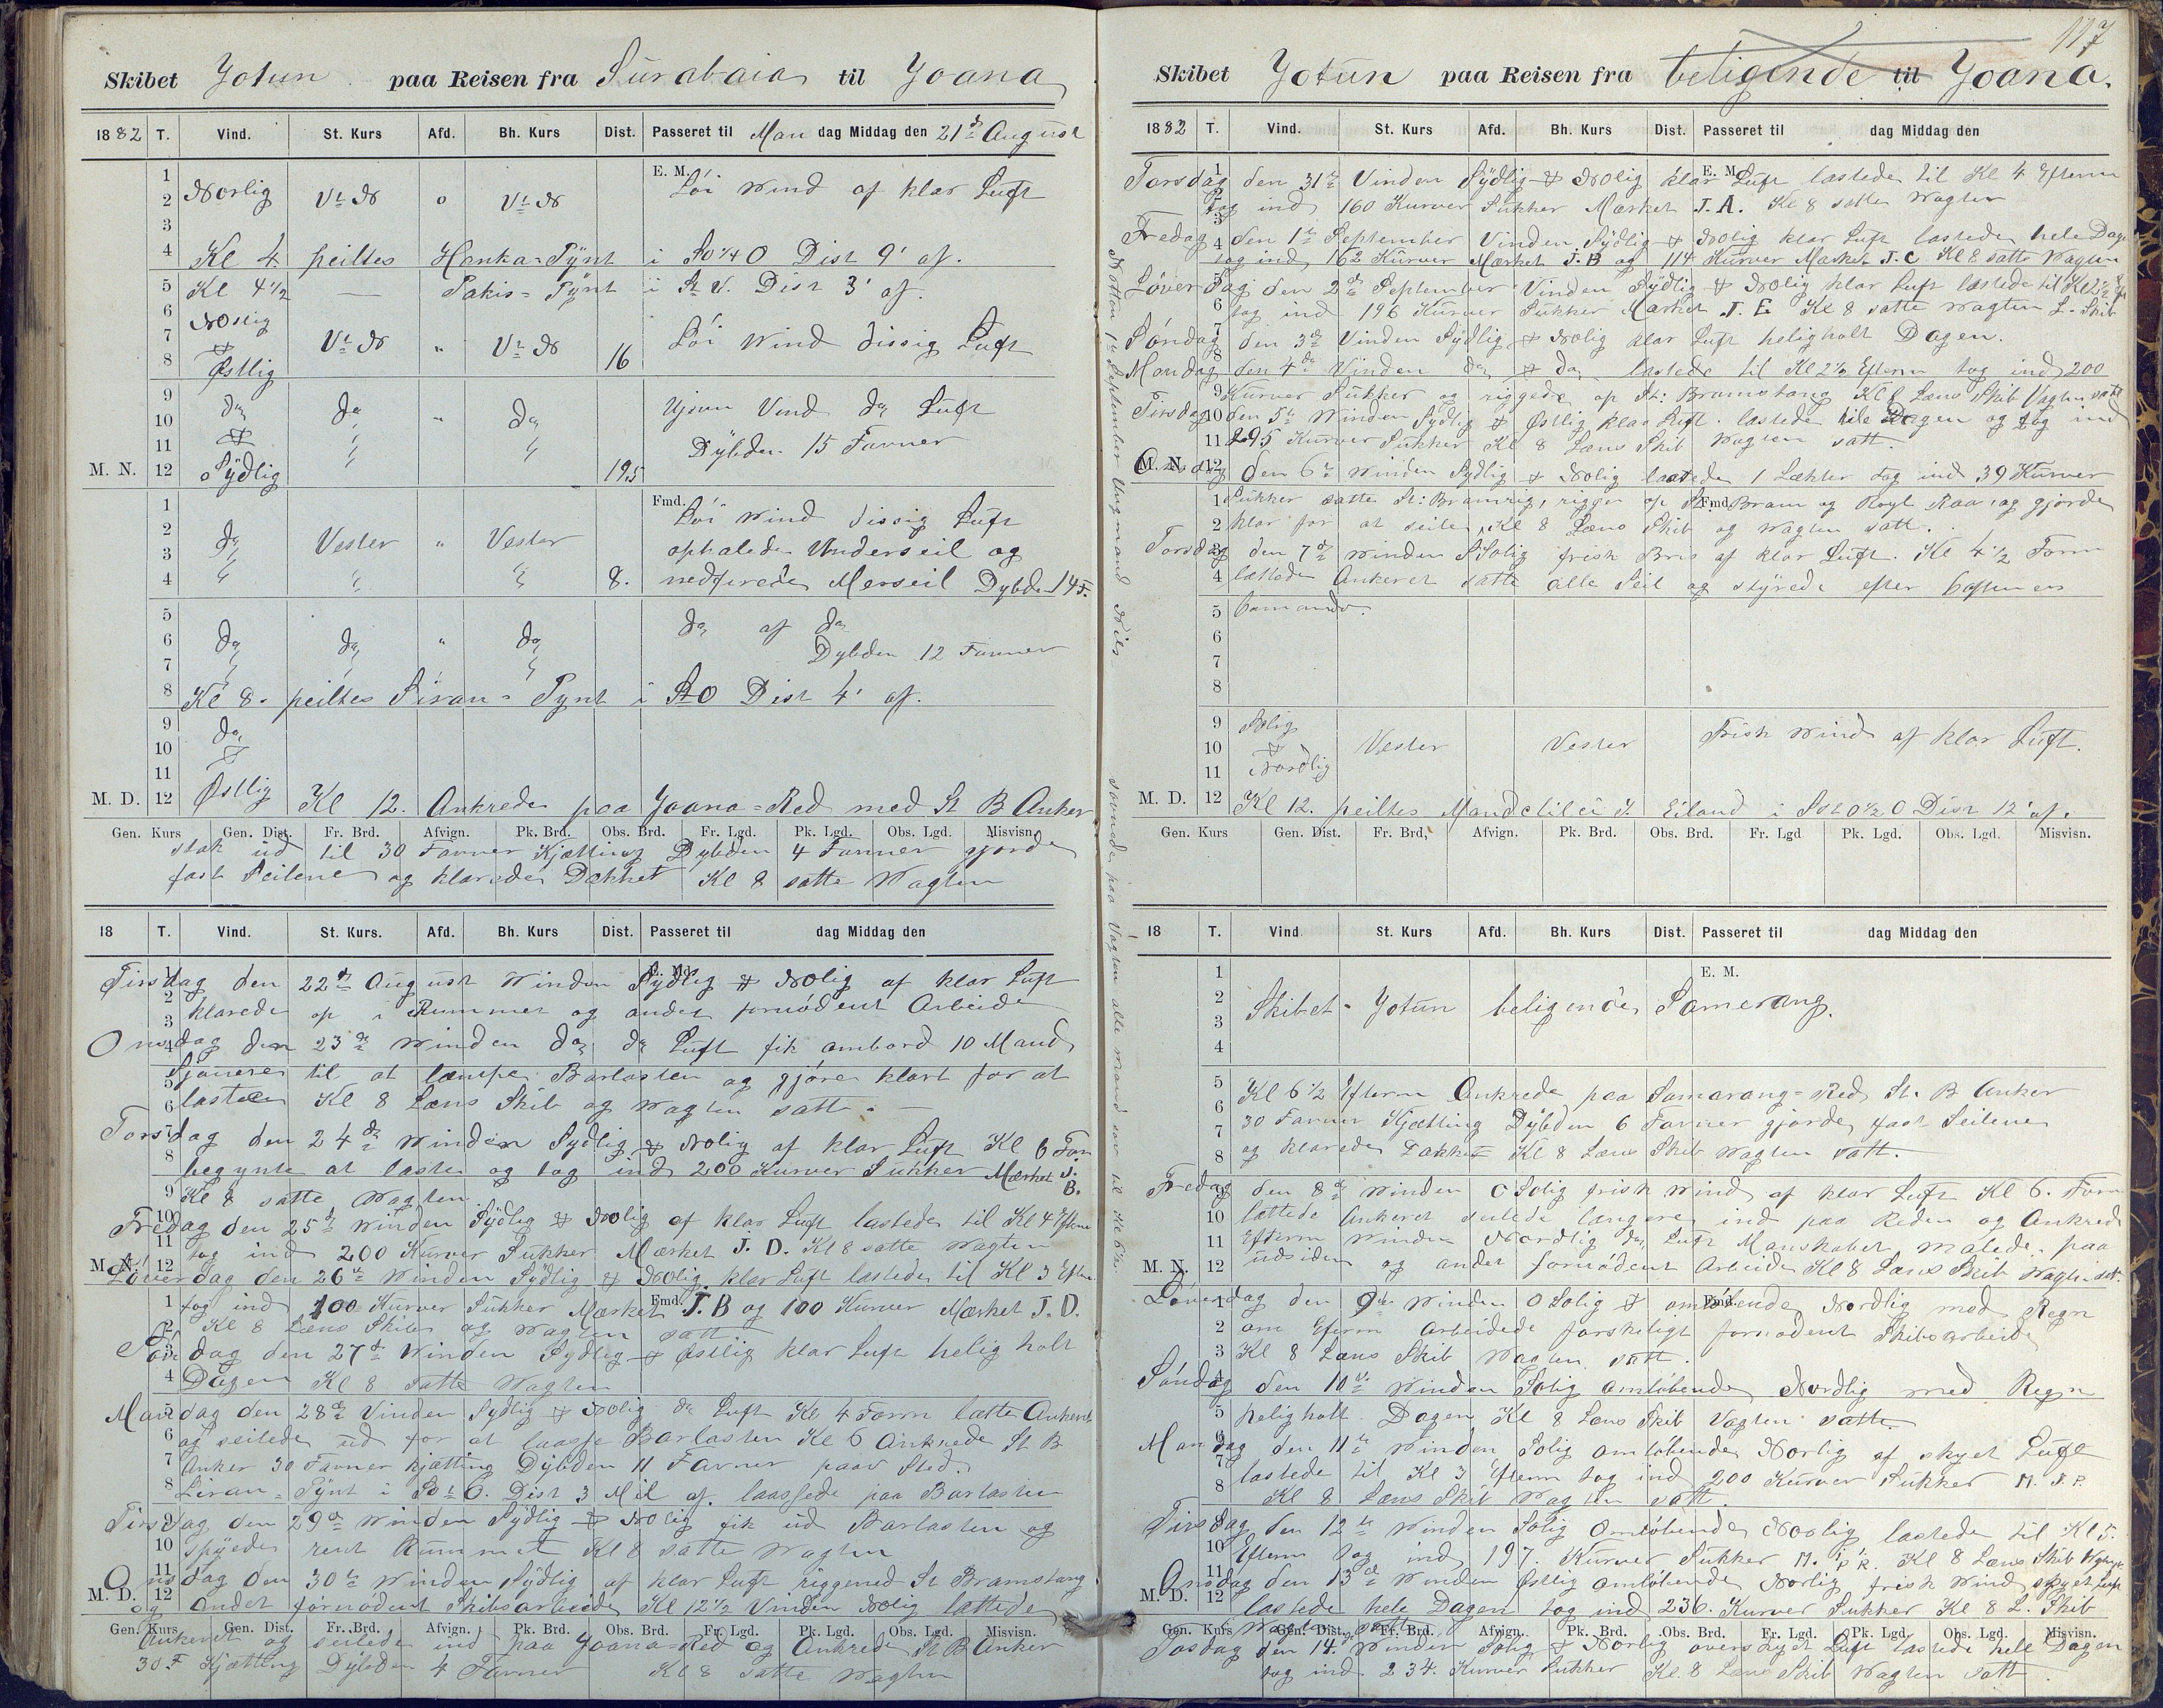 Skibet Jotun paa Reisen fra Surabaia til Joana
1882 T. Vind. St. Kurs Afd. Bh. Kurs Dist. Passeret til Mandag Middag den 21de August
E. M.
1
2 Norlig Vt N o Vt N Löi Wind af klar Luft
3
4 Kl 4. peiltes Hanka-Pÿnt i SO 1/4 O Dist 9' af.
5 Kl 4 1/2 — Pakis-Pÿnt i St V. Dist 3' af.
6 Nostlig
7 & Vt N " Vt N Löi Wind dissig Luft
8 Østlig 16
9 do do " do Ujevn Vind do Luft
10 &
11 Dÿbden 15 Favner
M. N. 12 Sÿdlig 19.5
Fmd.
1 Löi Wind dissig Luft
2 do Vester " Vester ophalede Underseil og
3
4 8. nedfirede Merseil Dybden 14 F.
5 do af do
6 do do " do Dybden 12 Favner
7
8 Kl 8. peiltes Siran-Pynt i StO Dist 4' af.
9 do
10 &
11
M. D. 12 Østlig Kl 12. Ankrede paa Joana-Red med St B Anker
Gen. Kurs Gen. Dist. Fr. Brd. Afvign. Pk. Brd. Obs. Brd. Fr. Lgd. Pk. Lgd. Obs. Lgd. Misvisn.
stak ud til 30 Favner Kjætting Dybden 4 Favner gjorde
fast Seilene og klarede Dækket Kl 8 satte Wagten
18 T. Vind. St. Kurs. Afd. Bh. Kurs Dist. Passeret til dag Middag den
Tirsdag den 22de August Winden Sÿdlig & Nolig af klar Luft
klarede op i Rummet og andet fornødent Arbeide
Onsdag den 23de Winden do do Luft fik ombord 10 Mand
Sjouere til at læmpe Barlasten og gjøre klart for at
laste Kl 8 Læns Skib og Wagten satt.
Torsdag den 24de Winden Sydlig & Nolig af klar Luft Kl 6 Form
begynte at laste og tog ind 200 Kurver Sukker Mærket J. B.
Kl 8 satte Wagten
Fredag den 25de Winden Sÿdlig & Nolig af klar Luft lastede til Kl 4 Efterm
tog ind 200 Kurver Sukker Mærket J. D. Kl 8 satte Wagten
M. N. 12
Løverdag den 26de Winden Sÿdlig & Nolig klar Luft lastede til Kl 3 Efterm
tog ind 100 Kurver Sukker Mærket J. B og 100 Kurver Mærket J. D.
Kl 8 Læns Skib og Wagten satt
Söndag den 27de Winden Sydlig & Østlig klar Luft helig holt
Dagen Kl 8 satte Wagten
Mandag den 28de Vinden Sydlig & Nolig do Luft Kl 4 Form lætte Ankeret
og seilede ud for at laasse Barlasten Kl 6 Ankrede St B
Anker 30 Favner kjætting Dÿbden 11 Favner paa Sted.
Siran-Pÿnt i SO t O. Dist 3 Mil af. laassede paa Barlasten
Tirsdag den 29de Winden Sÿdlig & Nolig fik ud Barlasten og
spÿede rent Rummet Kl 8 satte Wagten
Onsdag den 30te Winden Sÿdlig af klar Luft riggened St Bramstang
M. D. 12 og andet fornødent Skibsarbeide Kl 12 1/2 Vinden Nolig lættede
Gen. Kurs Gen. Dist. Fr. Brd. Afvign. Pk. Brd. Obs. Brd. Fr. Lgd. Pk. Lgd. Obs. Lgd. Misvisn.
Ankeret og seilede ind paa Joana-Red og Ankrede St B Anker
30 F Kjætting Dÿbden 4 Favner Kl 8 satte Wagten
117
Skibet Jotun paa Reisen fra beligende til Joana.
1882 T. Vind. St. Kurs Afd. Bh. Kurs Dist. Passeret til dag Middag den
E. M.
Torsdag den 31te Vinden Sÿdlig & Nolig klar Luft lastede til Kl 4 Efterm
tog ind 160 Kurver Sukker Mærket J. A. Kl 8 satte Wagten
Fredag den 1te September Vinden Sÿdlig & Nolig klar Luft lastede hele Dagen
tog ind 162 Kurver Mærket J. B og 114 Kurver Mærket J. C Kl 8 satte Wagten
Löverdag den 2de September Vinden Sÿdlig & Nolig klar Luft lastede til Kl 2 1/2
tog ind 196 Kurver Sukker Mærket J. E Kl 8 satte Wagten L. Skib
Söndag den 3de Vinden Sÿdlig & Nolig klar Luft heligholt Dagen.
Mandag den 4de Vinden do & do lastede til Kl 2 1/2 Efterm tog ind 200
Kurver Sukker og riggede op St: Bramstang Kl 8 Læns Skib Vagten satt
Tirsdag den 5te Winden Sydlig & Østlig klar Luft lastede hele Dagen og tog ind
295 Kurver Sukker Kl 8 Læns Skib Wagten satt
M. N. 12
Onsdag den 6te Winden Sydlig & Nolig lastede 1 Lækter tog ind 39 Kurver
Sukker satte St: Bramrig, rigger op St Bram og Royl Raa og gjorde
klar for at seile, Kl 8 Læns Skib og Wagten satt.
Torsdag den 7de Winden SSolig frisk Bris af klar Luft. Kl 4 1/2 Form
lættede Ankeret satte alle Seil og stÿrede efter Captenens
Comando.
5
6
7
8
9 Solig
10 & Vester Vester Frisk Wind af klar Luft.
11 Nordlig
M. D. 12 Kl 12. peiltes Eiland i SSt O 1/2 O Dist 12' af.
Gen. Kurs Gen. Dist. Fr. Brd, Afvign. Pk. Brd. Obs. Brd. Fr. Lgd Pk. Lgd. Obs. Lgd. Misvisn.
Natten 1te September Ungmand Nils sovnede paa Vagten alle Mand sov til Kl 6
18 T. Vind St. Kurs Afd. Bh. Kurs Dist. Passeret til dag Middag den
E. M.
Skibet - Jotun beligende Samerang.
Kl 6 1/2 Efterm Ankrede paa Samarang-Red St. B Anker
30 Favner Kjætting Dÿbden 6 Favner gjorde fast Seilene
og klarede Dækket Kl 8 Læns Skib Wagten satt.
Fredag den 8de Winden OSolig frisk Wind af klar Luft Kl 6. Form
lættede Ankeret seilede længere ind paa Reden og Ankrede
Efterm Winden Nordlig do Luft Manskabet malede paa
M. N. 12 udsiden og andet fornødent Arbeide Kl 8 Læns Skib Wagten satt.
Löverdag den 9de Winden OSolig & omløbende Nordlig med Regn
om Efterm Arbeidede forskeligt fornødent Skibsarbeide
Kl 8 Læns Skib Wagten satt.
Söndag den 10de Winden Solig omløbende Nordlig med Regn
heligholt Dagen Kl 8 Læns Skib Vagten satte
Mandag den 11te Winden Solig omløbende Norlig af skyet Luft
lastede til Kl 3 Efterm tog ind 200 Kurver Sukker
Kl 8 Læns Skib Wagten satt.
Tirsdag den 12te Winden Solig Omløbende Noolig lastede til Kl 5.
Efterm tog ind 197. Kurver Sukker Kl 8 Læns Skib
Onsdag den 13de Winden Østlig omløbende Norlig frisk Wind skyet Luft
M. D. 12 lastede hele Dagen tog ind 236. Kurver Sukker Kl 8 L. Skib
Wagten satt.
Gen. Kurs Gen. Dist. Fr. Brd. Afvign. Pk. Brd. Obs. Brd. Fr. Lgd. Pk. Lgd. Obs. Lgd. Misvisn.
Tosdag den 14. Winden Solig & Norlig overskyet Luft lastede hele Dagen
tog ind 234. Kurver Sukker Kl. 8 Læns Skib Wagten satt.